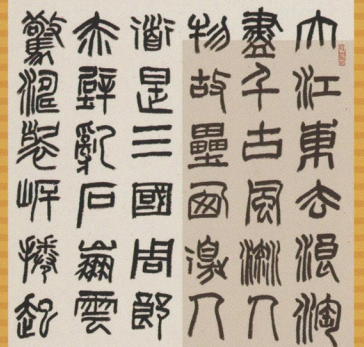 大江東去浪淘
盡千古風流人
物故壘西邊人
道是三國周郎
赤壁亂石崩雲
驚濤裂岸捲起